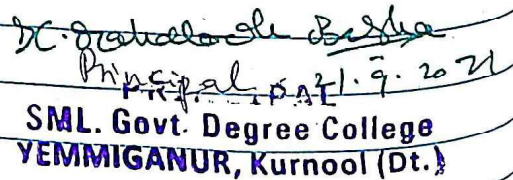 Principal 21.9.2021
PRINCIPAL
SML. Govt. Degree College
YEMMIGANUR, Kurnool (Dt.)